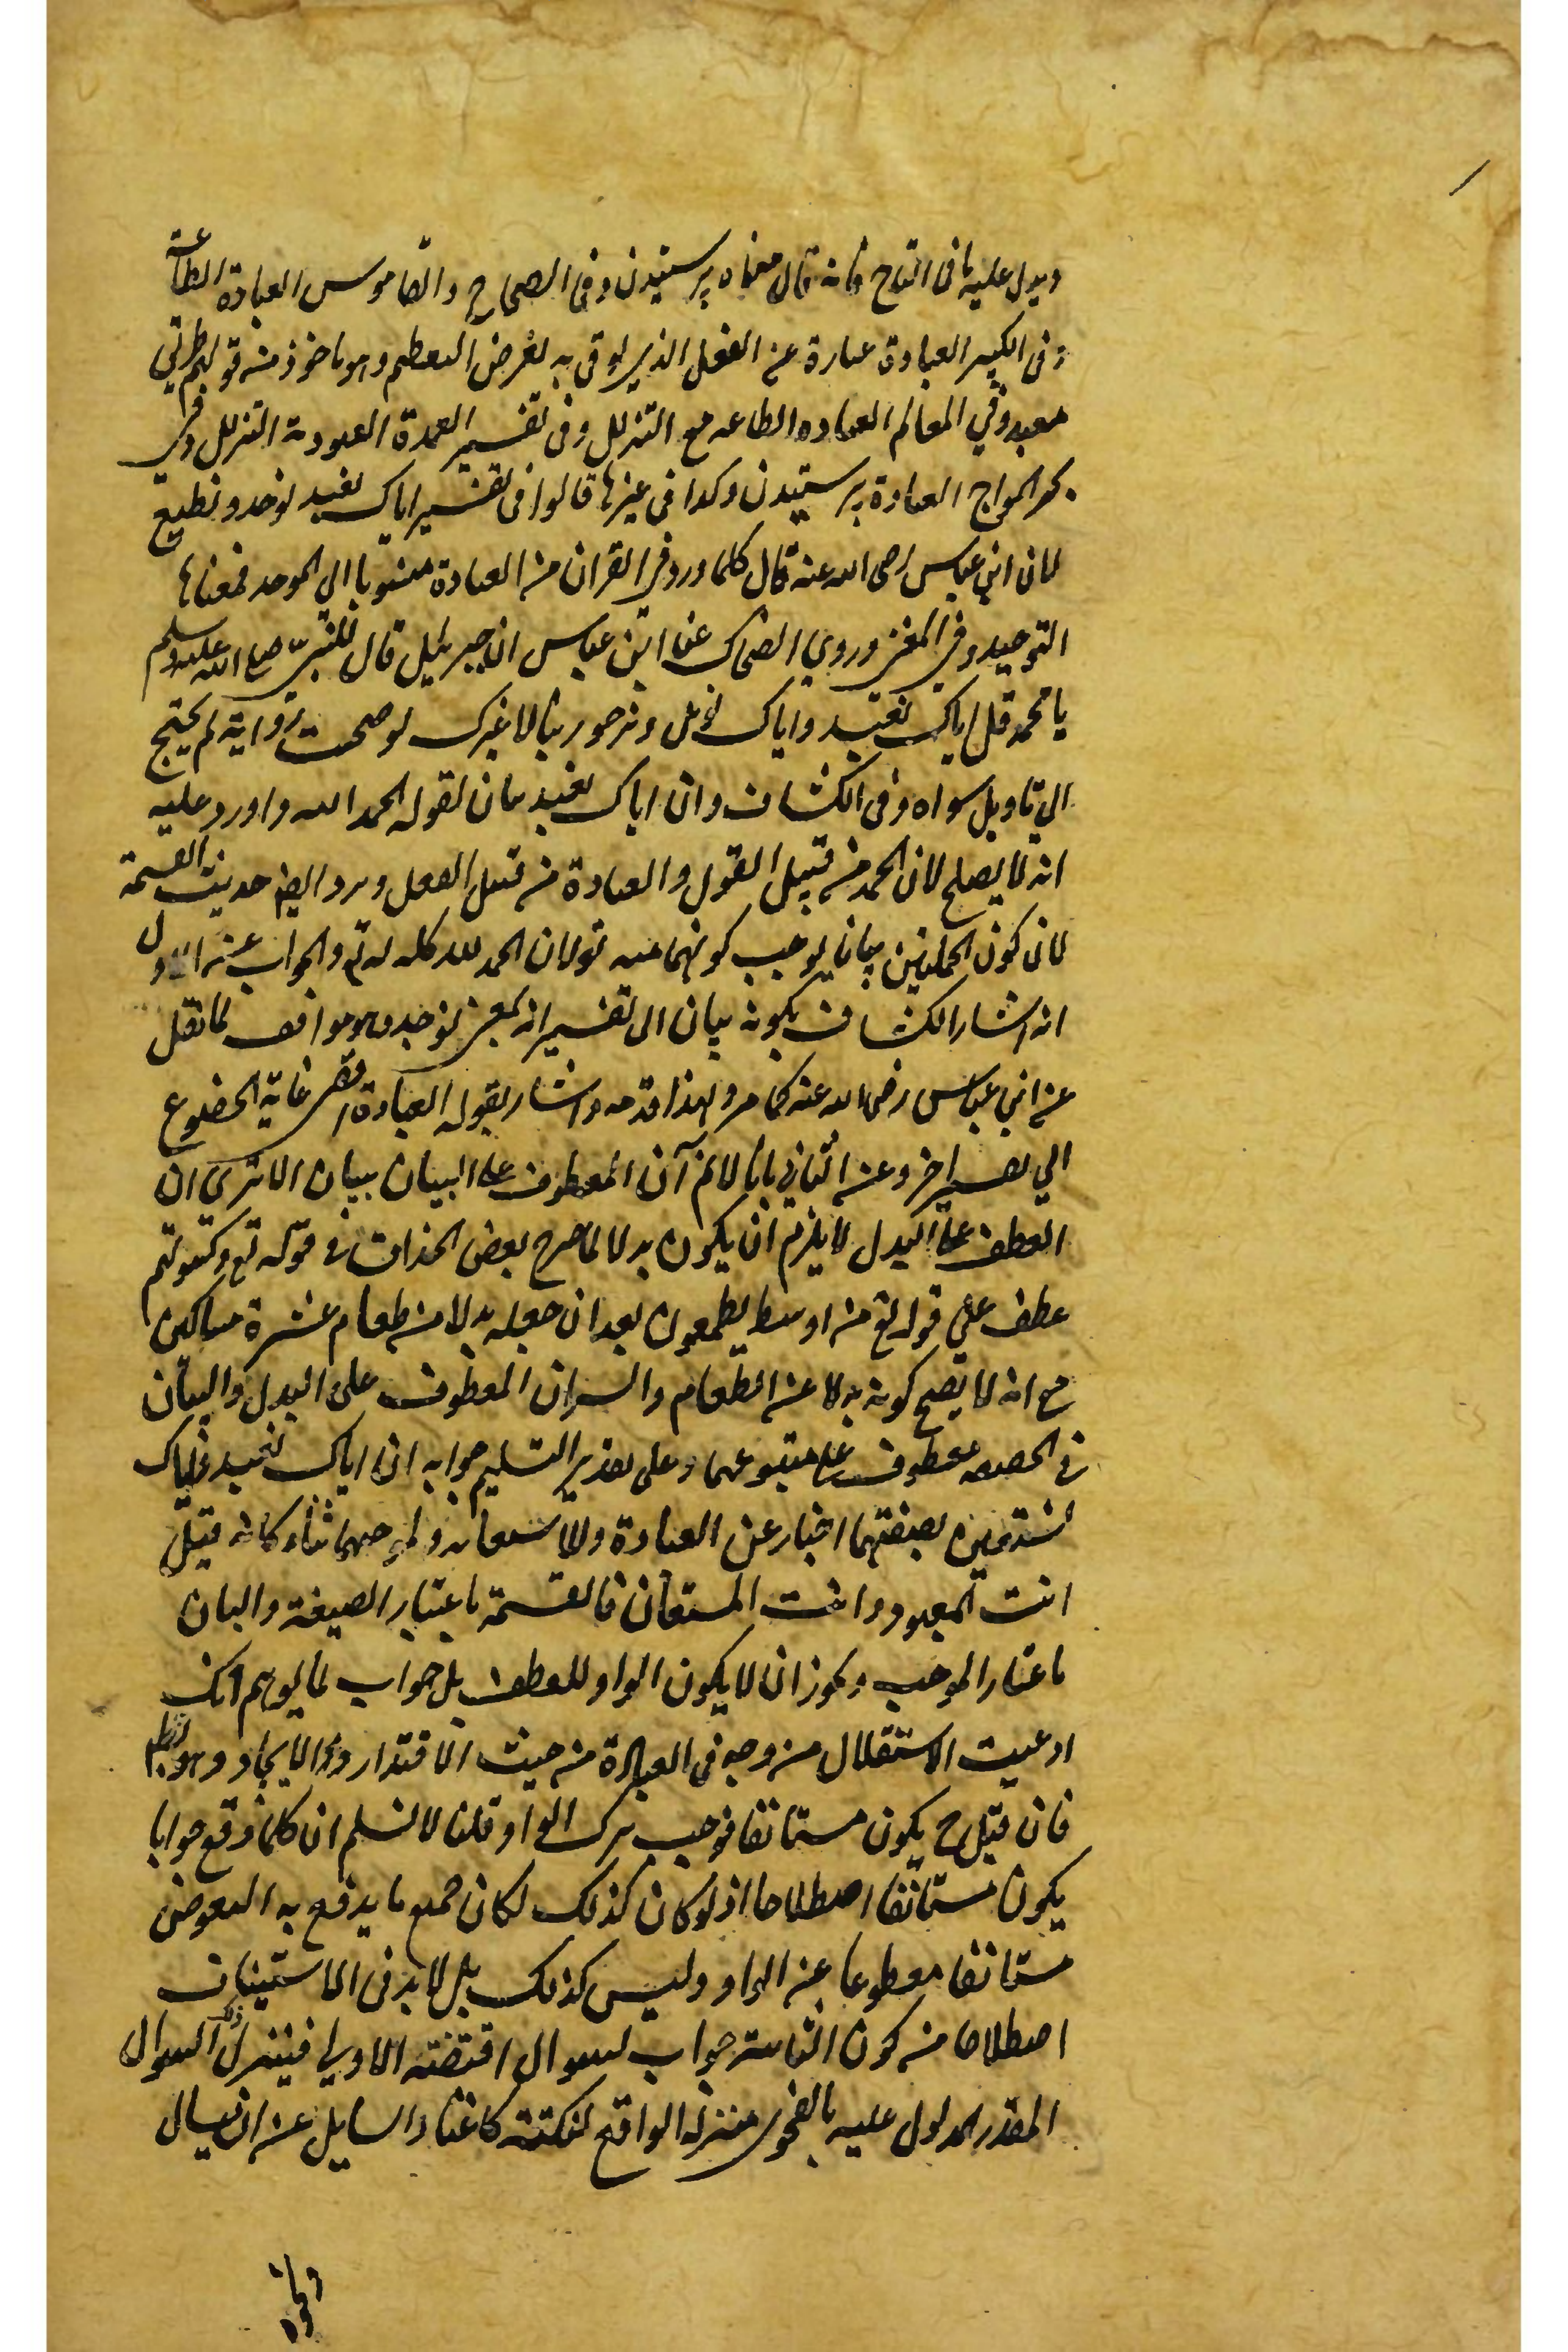 ويدل عليه ما فى التاج فانه قال معناه پرستيدن وفى الصحاح والقاموس العبادة الطاعة
وفى الكبير العبادة عبارة عن الفعل الذي يوتى به لغرض التعظيم وهو ماخوذ من قولهم طريق
معبد وفي المعالم العباده الطاعه مع التذلل وفى تفسير العمدة العبودية التذلل وفي
بحر المواج العبادة پرستيدن وكذا فى غيرها قالوا فى تفسير اياك نعبد نوحد ونطيع
لان ابن عباس رضى الله عنه قال كلما ورد في القران من العبادة منسوبا الي الموحد فمعناها
التوحيد وفي المغني وروي الضحاك عن ابن عباس ان جبرئيل قال للنبيّ صلى الله عليه وسلم
يا محمد قل اياك نعبد واياك نؤمل ونرجو ربنا لا غيرك لو صحت رواية لم يحتج
الي تاويل سواه وفى الكشاف وان اياك نعبد بيان لقوله الحمد لله واورد عليه
انه لا يصلح لان الحمد من قبيل القول والعبادة من قبيل الفعل ويرد ايضا حديث القسمة
لان كون الجملتين بيانا يوجب كونهما منه تع لان الحمد لله كله له تع والجواب عن الاول
انه اشار الكشاف بكونه بيان الى تفسيرانه بمعنى نوحد وهو موافق لما نقل
عن ابن عباس رضى الله عنه كما مر ولهذا قدمه واشار بقوله العبادة اقصى غاية الخضوع
الي تفسير اخر وعن الثاني بانا لا نم ان المعطوف على البيان بيان الا تري ان
العطف على البدل لا يلزم ان يكون بدلا لما صرح بعض الحذاق في قوله تع وكسوتهم
عطف علي قوله تع من اوسط يطعمون بعد ان جعله بدلا من طعام عشرة مساكين
مع انه لا يصح كونه بدلا عن الطعام والسر ان المعطوف على البدل والبيان
في الحقيقه معطوف على متبوعهما وعلى تقدير التسليم جوابه ان اياك نعبد واياك
نستعين بصيغتهما اخبار عن العبادة والاستعانه وبموجبهما ثناء كانه قيل
انت المعبود وانت المستعان فالقسمة باعتبار الصيغة والبيان
باعتبار الموجب ويجوز ان لا يكون الواو للعطف بل جواب لما يوهم انك
ادعيت الاستقلال من وجه فى العبادة من حيث الاقتدار والايجاد وهو باطل
فان قيل ح يكون مستانفا فوجب ترك الواو قلنا لا نسلم ان كلما وقع جوابا
يكون مستانفا اصطلاحا اذ لو كان كذلك لكان جميع ما يدفع به التعرض
مستانفا مقطوعا عن الواو وليس كذلك بل لا بد فى الاستيناف
اصطلاحا من كون الثانية جواب لسوال اقتضته الاولي فينزل ذلك السوال
المقدر المدلول عليه بالفحوى منزلة الواقع لنكتة كاغناء السايل عن ان يسال